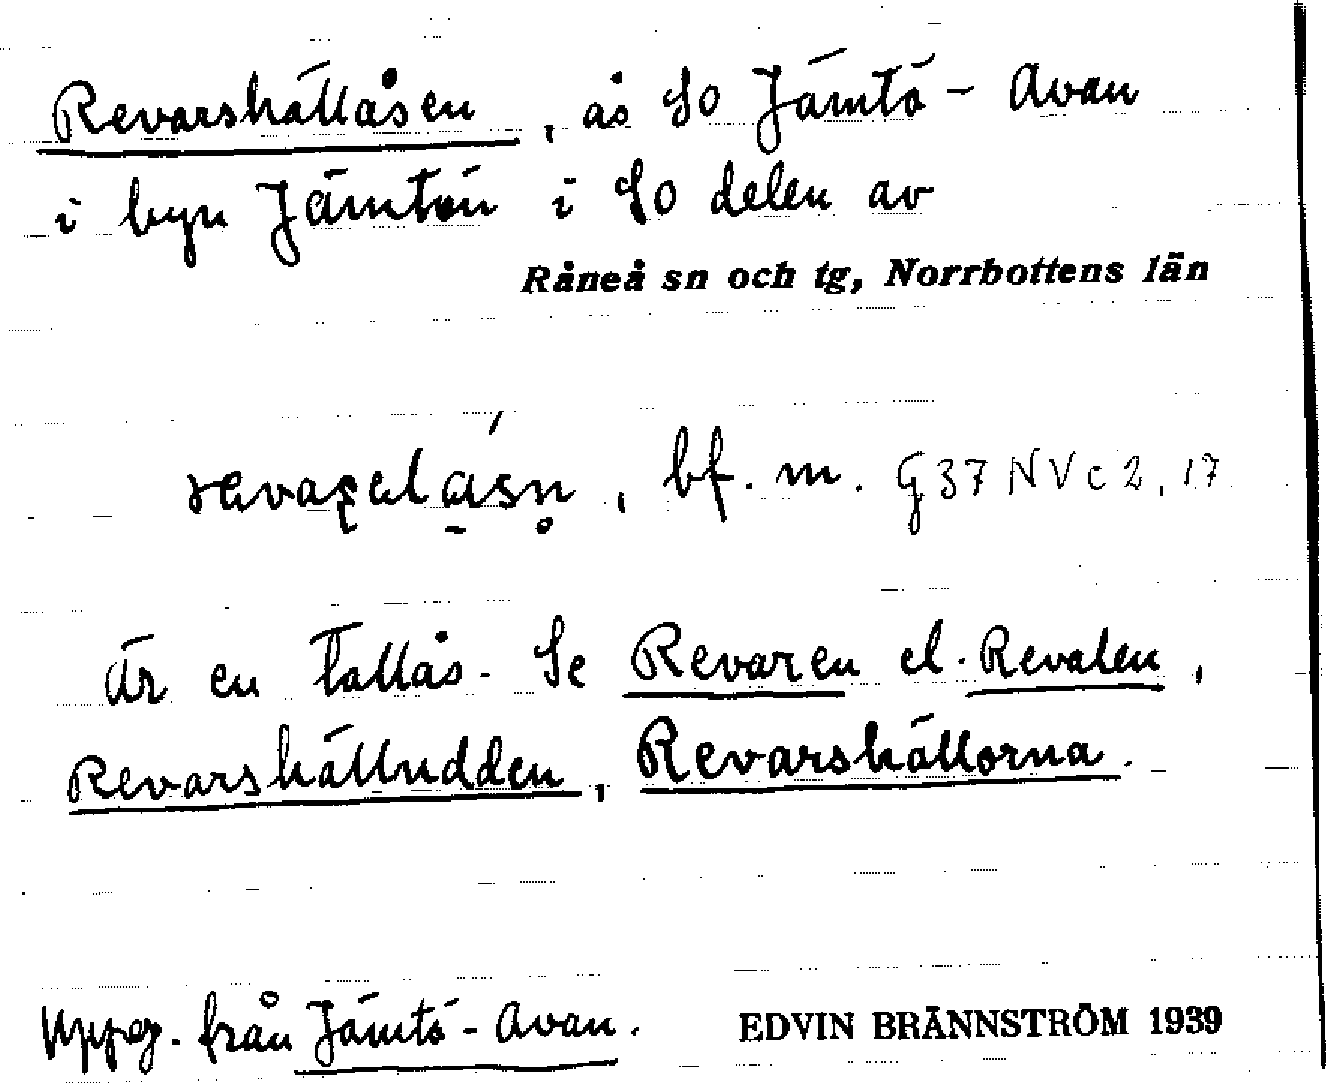 Revarshällåsen, ås SO Jämtö-Avan
i byn Jämtön i SO delen av
Råneå sn och tg, Norrbottens län
bf. m. G37 NVc2, 17
Är en tallås. Se Revaren el. Revalen,
Revarshälludden, Revarshällorna.
Uppg. från Jämtö-Avan.
EDVIN BRÄNNSTRÖM 1939